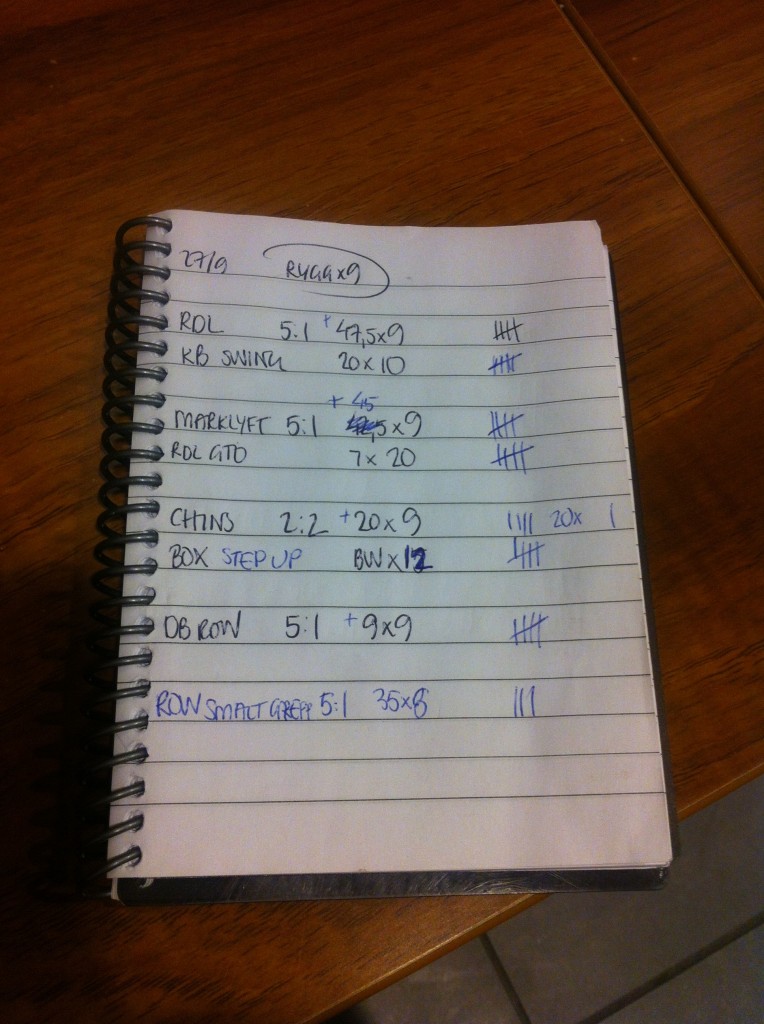 27/9 RYGGx9
RDL 5:1 + 47,5x9 卌
KB SWING 20 x 10 卌
+ 45
MARKLYFT 5:1 x 9 卌
RDL GTO 7 x 20 卌
CHINS 2:2 + 20 x 9 |||| 20x 1
BOX STEP UP BW x 12 卌
DB ROW 5:1 + 9x9 卌
ROW SMALT GREPP 5:1 35x8 |||